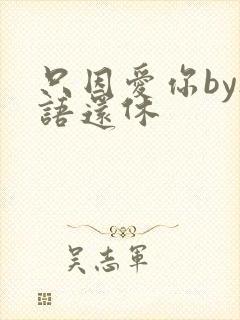 只因愛你by
語還休
吳志軍